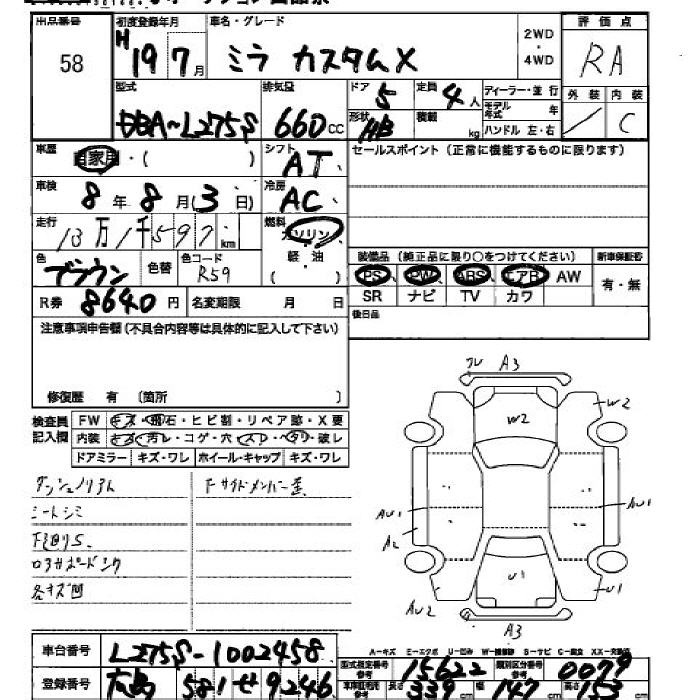 出品番号 初度登録年月 車名・グレード 評価点
58 H 19 7月 ミラ カスタムX 2WD・4WD RA
型式 排気量 ドア 5 定員 4人 ディーラー・並行 外装 内装
DBA-L275S 660cc 形状 HB 積載 kg モデル年式 年 ハンドル 左・右 / C
車歴 自家用・( ) シフト AT セールスポイント(正常に機能するものに限ります)
車検 8年8月(3日) 冷房 AC
走行 13万1千597km 燃料 ガソリン 軽・油 ( )
色 ブラウン 色替 色コード R59
装備品(純正品に限り○をつけてください) 新車保証書
PS PW ABS エアB AW 有・無
SR ナビ TV カワ
R券 8640円 名変期限 月 日 後日品
注意事項申告欄(不具合内容等は具体的に記入して下さい)
修復歴 有 〔箇所 〕
検査員記入欄 FW キズ・飛石・ヒビ割・リペア跡・X要
内装 キズ・汚レ・コゲ・穴・スレ・ヘタリ・破レ
ドアミラー キズ・ワレ ホイール・キャップ キズ・ワレ
シートシミ
ワレ A3
W2 W2
AU1 AU1
A2
U1 U1
AU2
A3
車台番号 L275S-1002458
A-キズ E-エクボ U-凹み S-サビ C-腐食
型式指定番号 15622 類別区分番号 0079
登録番号 広島 581 せ 9246
長さ 339cm 幅 147cm 高さ 153cm